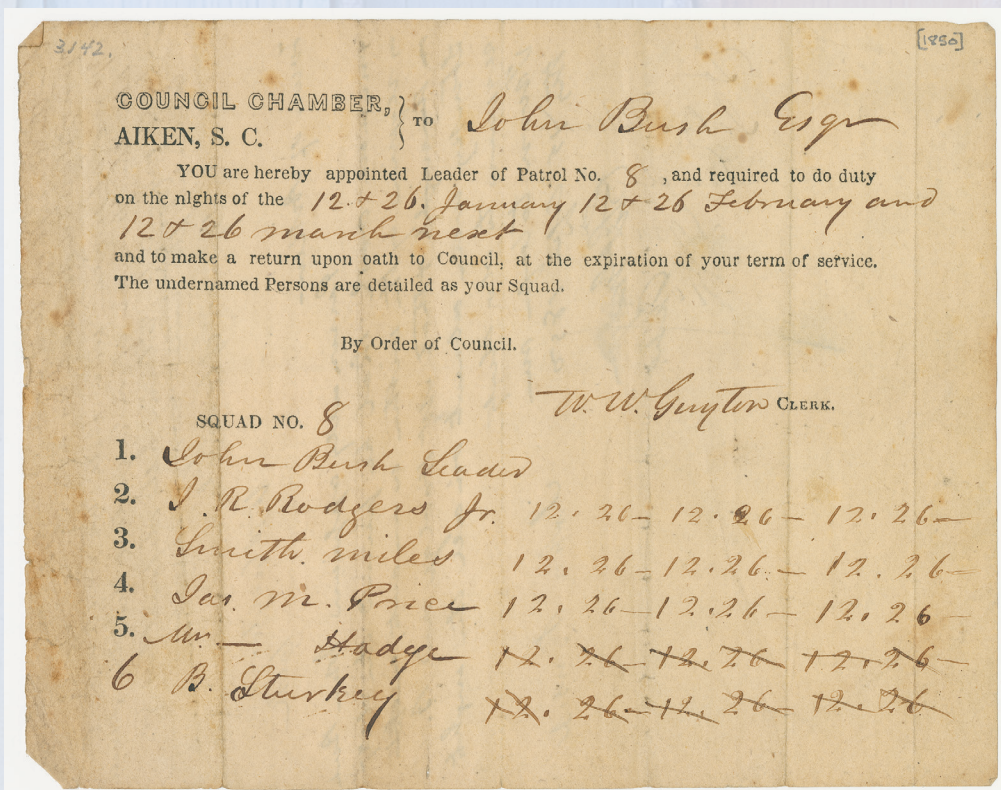 3142.
[1850]
COUNCIL CHAMBER,
AIKEN, S. C.
TO John Bush Esqr
YOU are hereby appointed Leader of Patrol No. 8, and required to do duty
on the nights of the 12. & 26. January 12 & 26 February and
12 & 26 march next
and to make a return upon oath to Council, at the expiration of your term of service.
The undernamed Persons are detailed as your Squad.
By Order of Council.
W. W. Guyton CLERK.
SQUAD NO. 8
1. John Bush Leader
2. J. R. Rodgers Jr. 12. 26 - 12. 26 - 12. 26 -
3. Smith. miles 12. 26 - 12. 26 - 12. 26 -
4. Jas. M. Price 12. 26 - 12. 26 - 12. 26 -
5. Mr. — Hodge 12. 26 - 12. 26 - 12. 26 -
6 B. Sturkey 12. 26 - 12. 26 - 12. 26